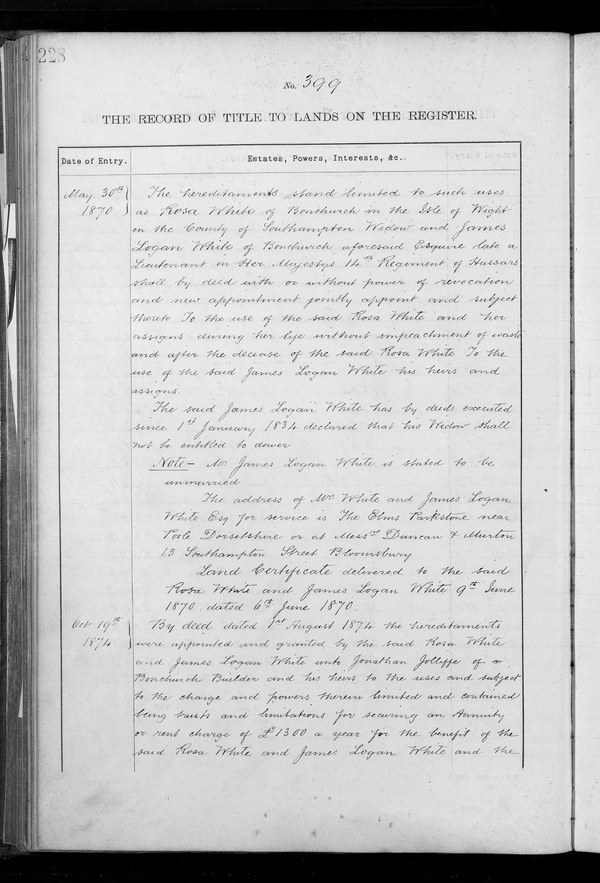 228
No. 399
THE RECORD OF TITLE TO LANDS ON THE REGISTER.
Date of Entry.
Estates, Powers, Interests, &c.
May 30th
1870
The hereditaments stand limited to such uses
as Rosa White of Bonchurch in the Isle of Wight
in the County of Southampton Widow and James
Logan White of Bonchurch aforesaid Esquire late a
Lieutenant in Her Majestys 14th Regiment of Hussars
shall by deed with or without power of revocation
and new appointment jointly appoint and subject
thereto To the use of the said Rosa White and her
assigns during her life without impeachment of waste
and after the decease of the said Rosa White To the
use of the said James Logan White his heirs and
assigns.
The said James Logan White has by deeds executed
since 1st January 1834 declared that his Widow shall
not be entitled to dower
Note - Mr James Logan White is stated to be
unmarried
The address of Mrs White and James Logan
White Esq for service is The Elms Parkstone near
Poole Dorsetshire or at Messrs Duncan & Murton
13 Southampton Street Bloomsbury
Land Certificate delivered to the said
Rosa White and James Logan White 9th June
1870. dated 6th June 1870.
Oct 19th
1874
By deed dated 1st August 1874 the hereditaments
were appointed and granted by the said Rosa White
and James Logan White unto Jonathan Jolliffe of
Bonchurch Builder and his heirs to the uses and subject
to the charge and powers therein limited and contained
being trusts and limitations for securing an Annuity
or rent charge of £1300 a year for the benefit of the
said Rosa White and James Logan White and the